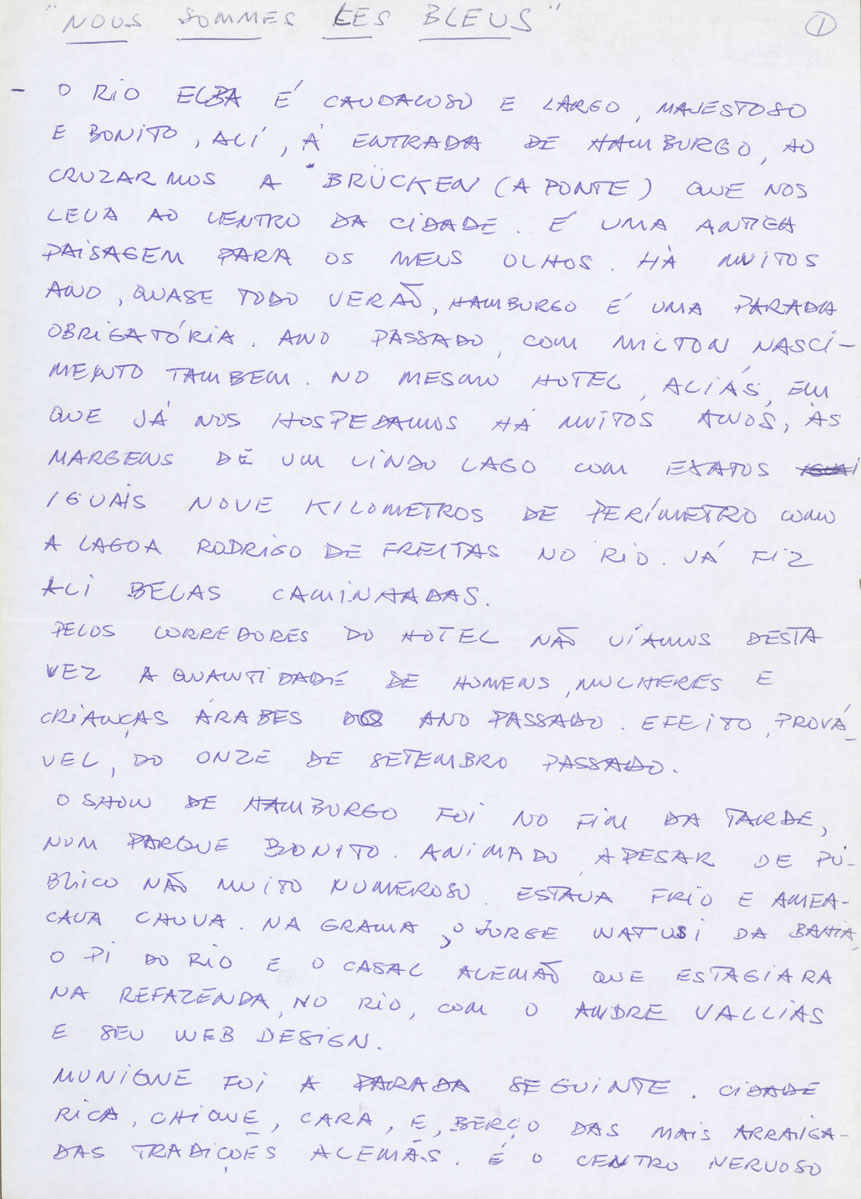 "NOUS SOMMES LES BLEUS" 1
- O RIO ELBA É CAUDALOSO E LARGO, MAJESTOSO
E BONITO, ALÍ, À ENTRADA DE HAMBURGO, AO
CRUZARMOS A "BRÜCKEN (A PONTE) QUE NOS
LEVA AO CENTRO DA CIDADE. É UMA ANTIGA
PAISAGEM PARA OS MEUS OLHOS. HÀ MUITOS
ANO, QUASE TODO VERÃO, HAMBURGO É UMA PARADA
OBRIGATÓRIA. ANO PASSADO, COM MILTON NASCI-
MENTO TAMBEM. NO MESMO HOTEL, ALIÁS, EM
QUE JÁ NOS HOSPEDAMOS HÁ MUITOS ANOS, ÀS
MARGENS DE UM LINDO LAGO COM EXATOS
IGUAIS NOVE KILOMETROS DE PERÍMETRO COMO
A LAGOA RODRIGO DE FREITAS NO RIO. JÁ FIZ
ALI BELAS CAMINHADAS.
PELOS CORREDORES DO HOTEL NÃO VÍAMOS DESTA
VEZ A QUANTIDADE DE HOMENS, MULHERES E
CRIANÇAS ÁRABES DO ANO PASSADO. EFEITO, PROVÁ-
VEL, DO ONZE DE SETEMBRO PASSADO.
O SHOW DE HAMBURGO FOI NO FIM DA TARDE,
NUM PARQUE BONITO. ANIMADO, APESAR DE PÚ-
BLICO NÃO MUITO NUMEROSO. ESTAVA FRIO E AMEA-
CAVA CHUVA. NA GRAMA, O JORGE WATUSI DA BAHIA,
O PI DO RIO E O CASAL ALEMÃO QUE ESTAGIARA
NA REFAZENDA, NO RIO, COM O ANDRE VALLIAS
E SEU WEB DESIGN.
MUNIQUE FOI A PARADA SEGUINTE. CIDADE
RICA, CHIQUE, CARA, E, BERÇO DAS MAIS ARRAIGA-
DAS TRADIÇÕES ALEMÃS. É O CENTRO NERVOSO